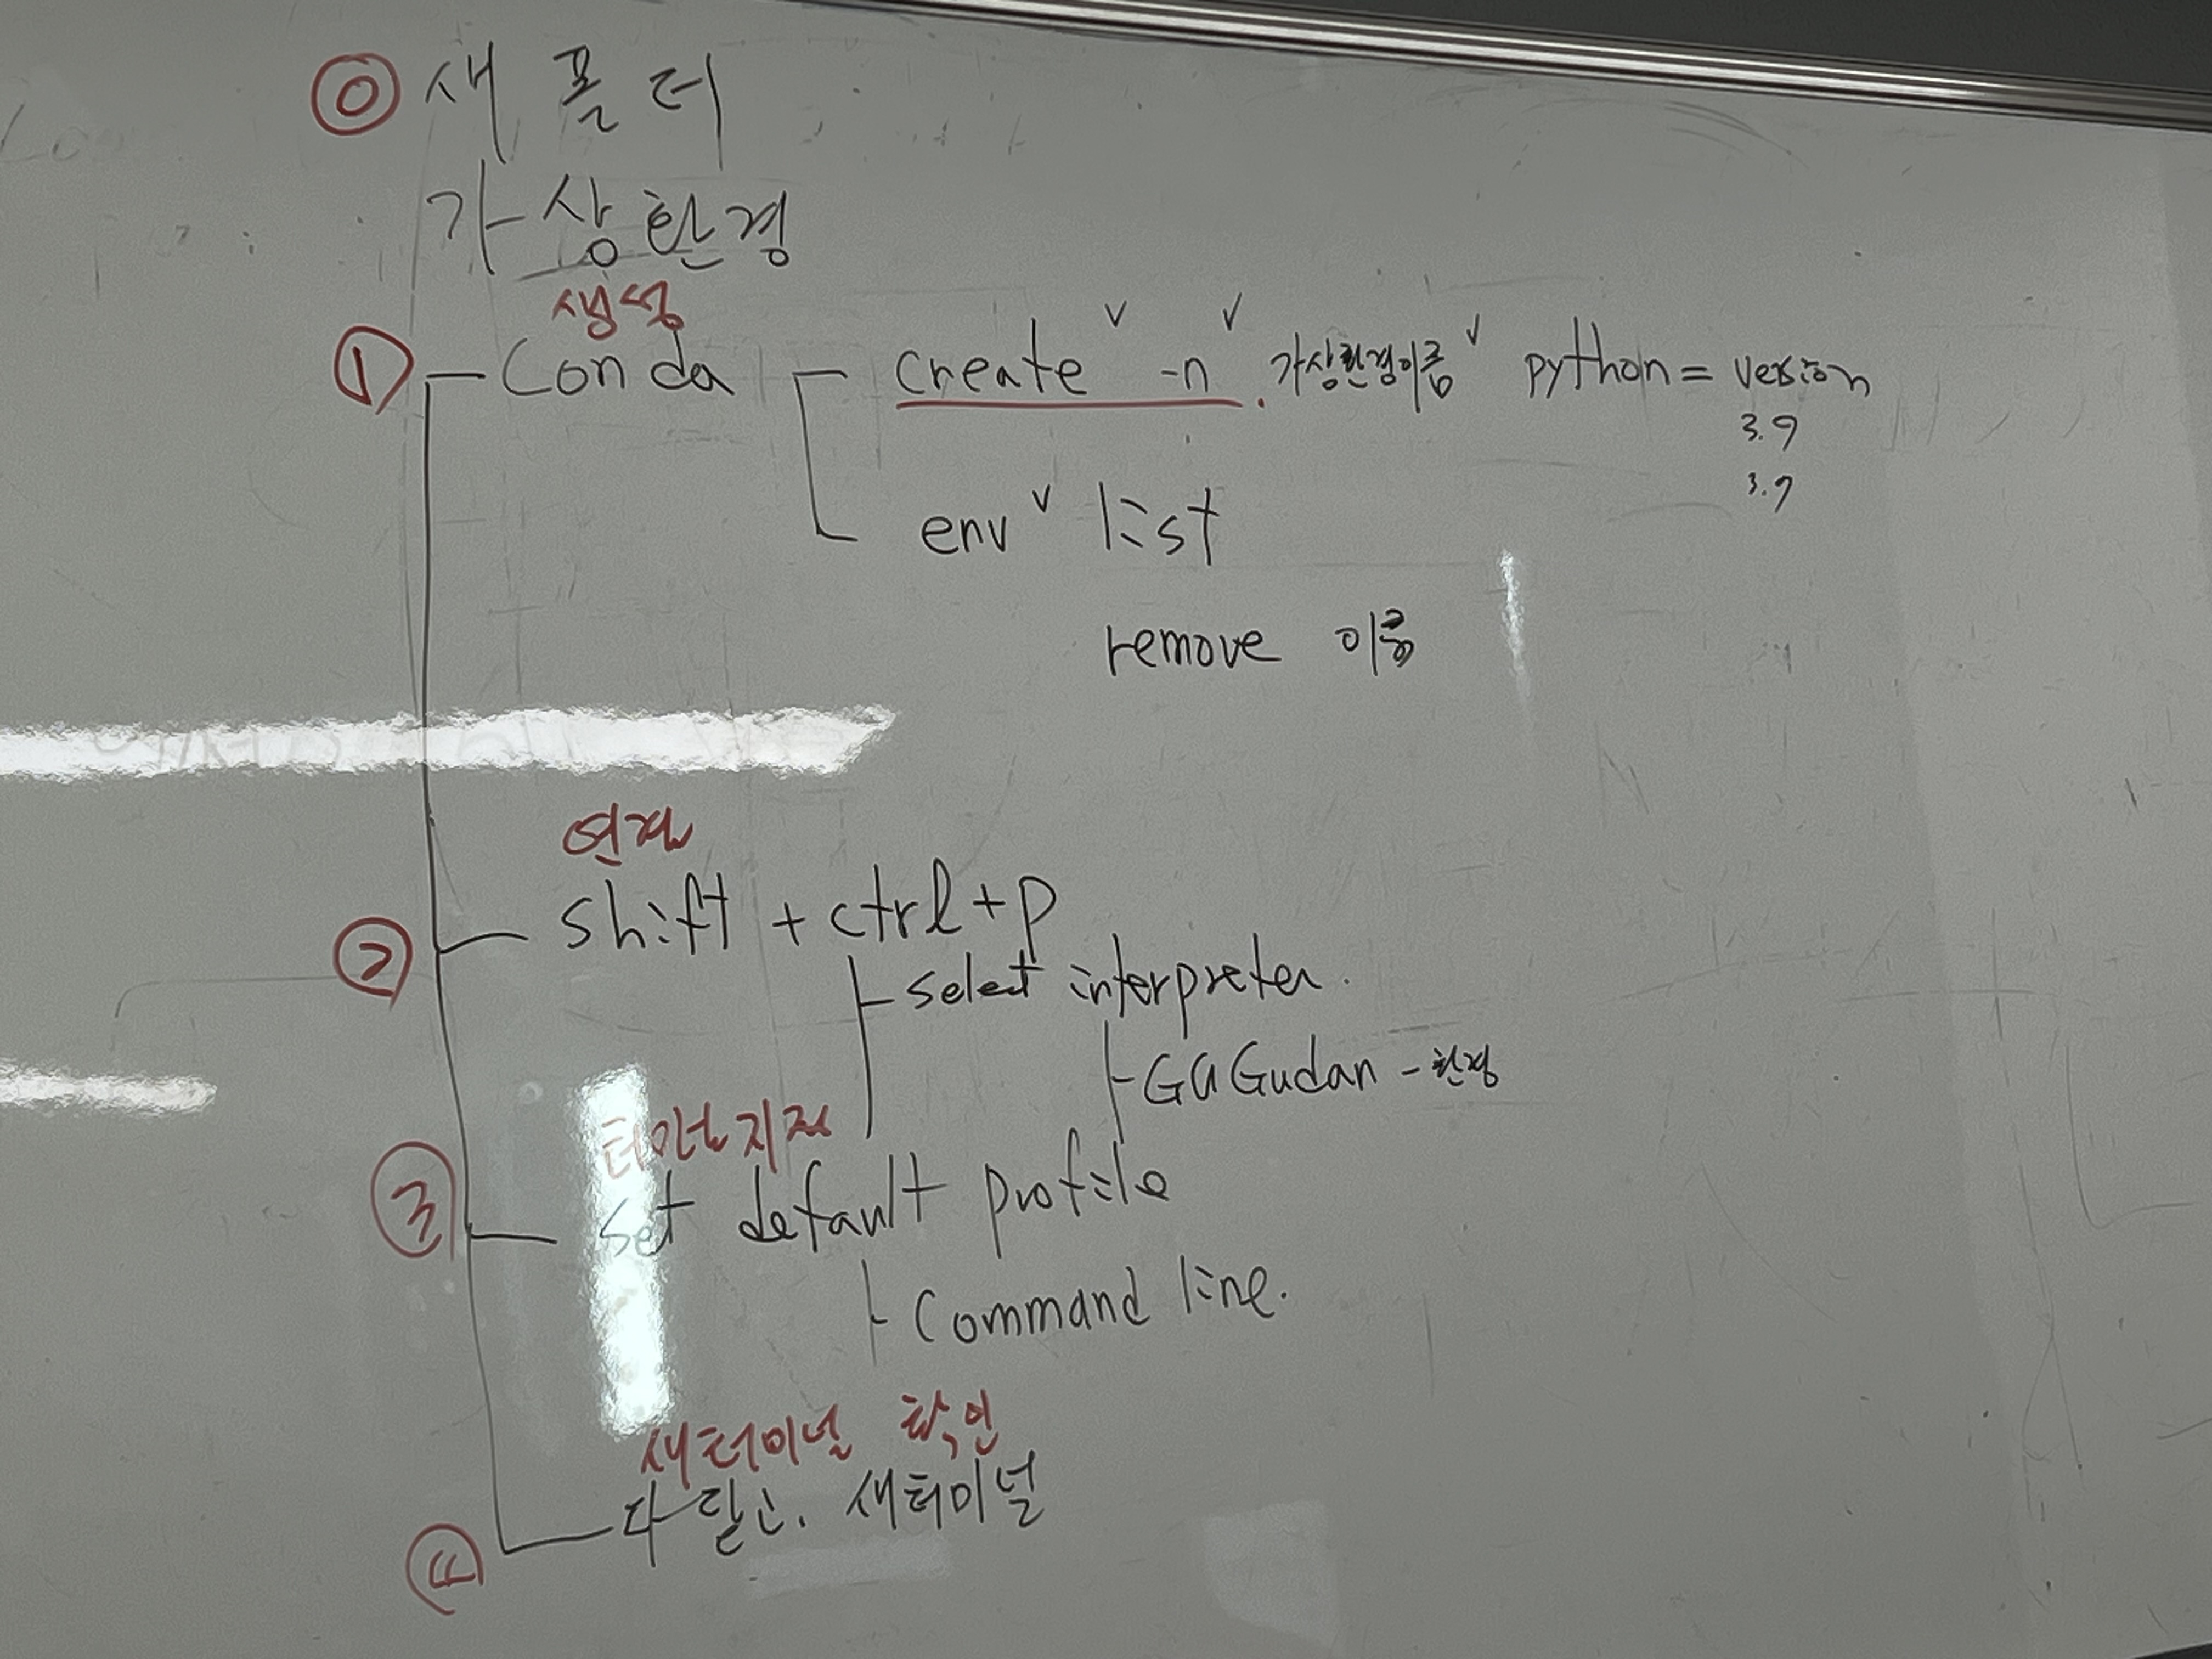 ⓪ 새 폴더
가상환경
생성
① Conda create -n 가상환경이름 python = version
3.9
3.7
env list
remove 이름
연결
② shift + ctrl + p
select interpreter.
GuGudan - 환경
터미널 지정
③ set default profile
Command line.
새터미널 확인
④ 다 닫고. 새터미널